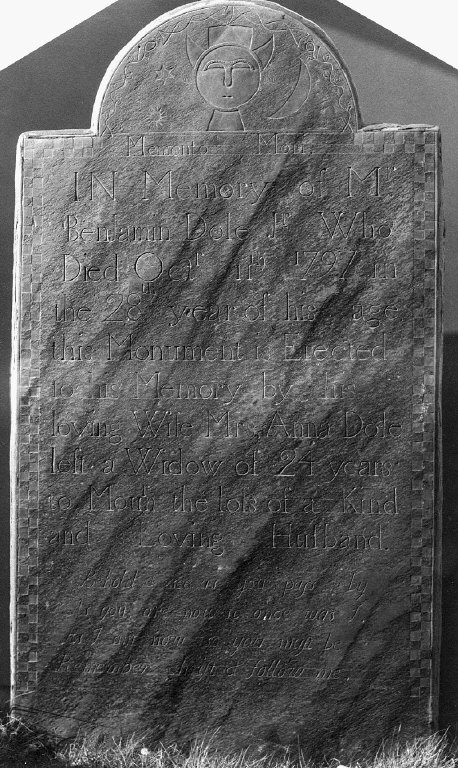 Memento Mori
IN Memory of Mʳ
Benjamin Dole Jʳ Who
Died Octʳ 11ᵗʰ 1797 in
the 28ᵗʰ year of his age
this Monument is Erected
to his Memory by his
loving Wife Mrs. Anna Dole
left a Widow of 24 years
to Mourn the loſs of a Kind
and Loving Huſband.
as you paſs by
As you are now so once was I,
As I am now so you muſt be
follow me.